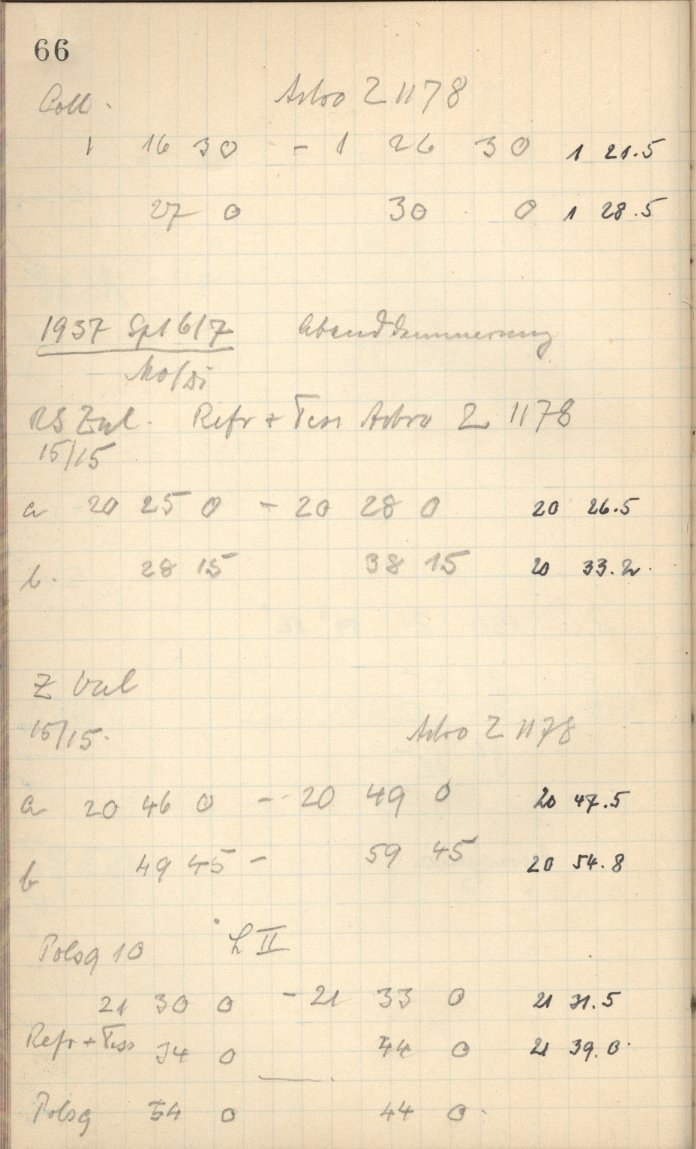 66
Coll. Astro Z 1178
1 16 30 - 1 26 30 1 21.5
27 0 30 0 1 28.5
1937 Spt 6/7 Abenddämmerung
Mo/Di
RS Vul. Refr + Tess Astro Z 1178
15/15
a 20 25 0 - 20 28 0 20 26.5
b. 28 15 38 15 20 33.2.
Z Vul
15/15. Astro Z 1178
a 20 46 0 - 20 49 0 20 47.5
b 49 45 - 59 45 20 54.8
Polsq 10 L II
21 30 0 - 21 33 0 21 31.5
Refr + Tess 34 0 44 0 21 39.0.
Polsq 34 0 44 0.